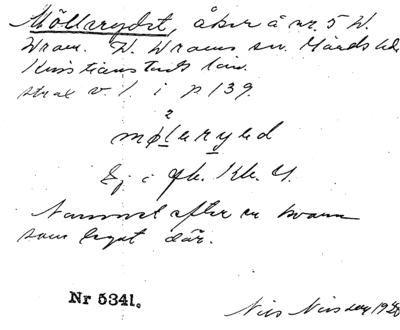 Möllerydet, åker å nr. 5 W.
Wram. W. Wrams sn. Gärds hd.
Kristianstads län.
strax v. l. i p 139.
møl²eryed
Ej i gk. Kk. Y.
Namnet efter en kvarn
som legat där.
Nr 5341.
Nils Nilsson 1926